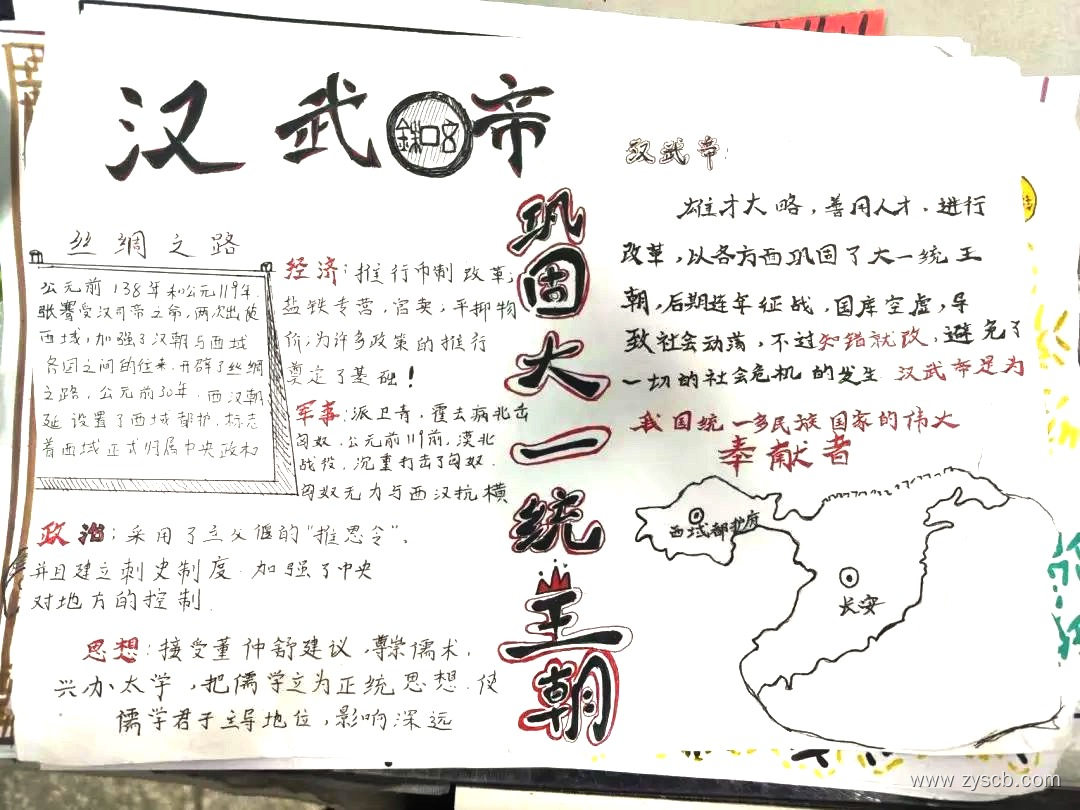 汉武帝
丝绸之路
公元前138年和公元119年,
张骞受汉武帝之命,两次出使
西域,加强了汉朝与西域
各国之间的往来,开辟了丝绸
之路,公元前30年,西汉朝
延设置了西域都护,标志
着西域正式归属中央政权
经济:推行币制改革,
盐铁专营,官卖,平抑物
价,为许多政策的推行
奠定了基础!
军事:派卫青,霍去病北击
匈奴.公元前119前,漠北
战役,沉重打击了匈奴.
匈奴无力与西汉抗横
政治:采用了主父偃的"推恩令",
并且建立刺史制度.加强了中央
对地方的控制.
思想:接受董仲舒建议,尊崇儒术,
兴办太学,把儒学立为正统思想.使
儒学君于主导地位,影响深远
巩固大一统王朝
汉武帝:
雄才大略,善用人才.进行
改革,以各方面巩固了大一统王
朝,后期连年征战,国库空虚,导
致社会动荡,不过知错就改,避免了
一切的社会危机的发生 汉武帝是为
我国统一多民族国家的伟大
奉献者
西域都护府
长安
www.zyscb.com